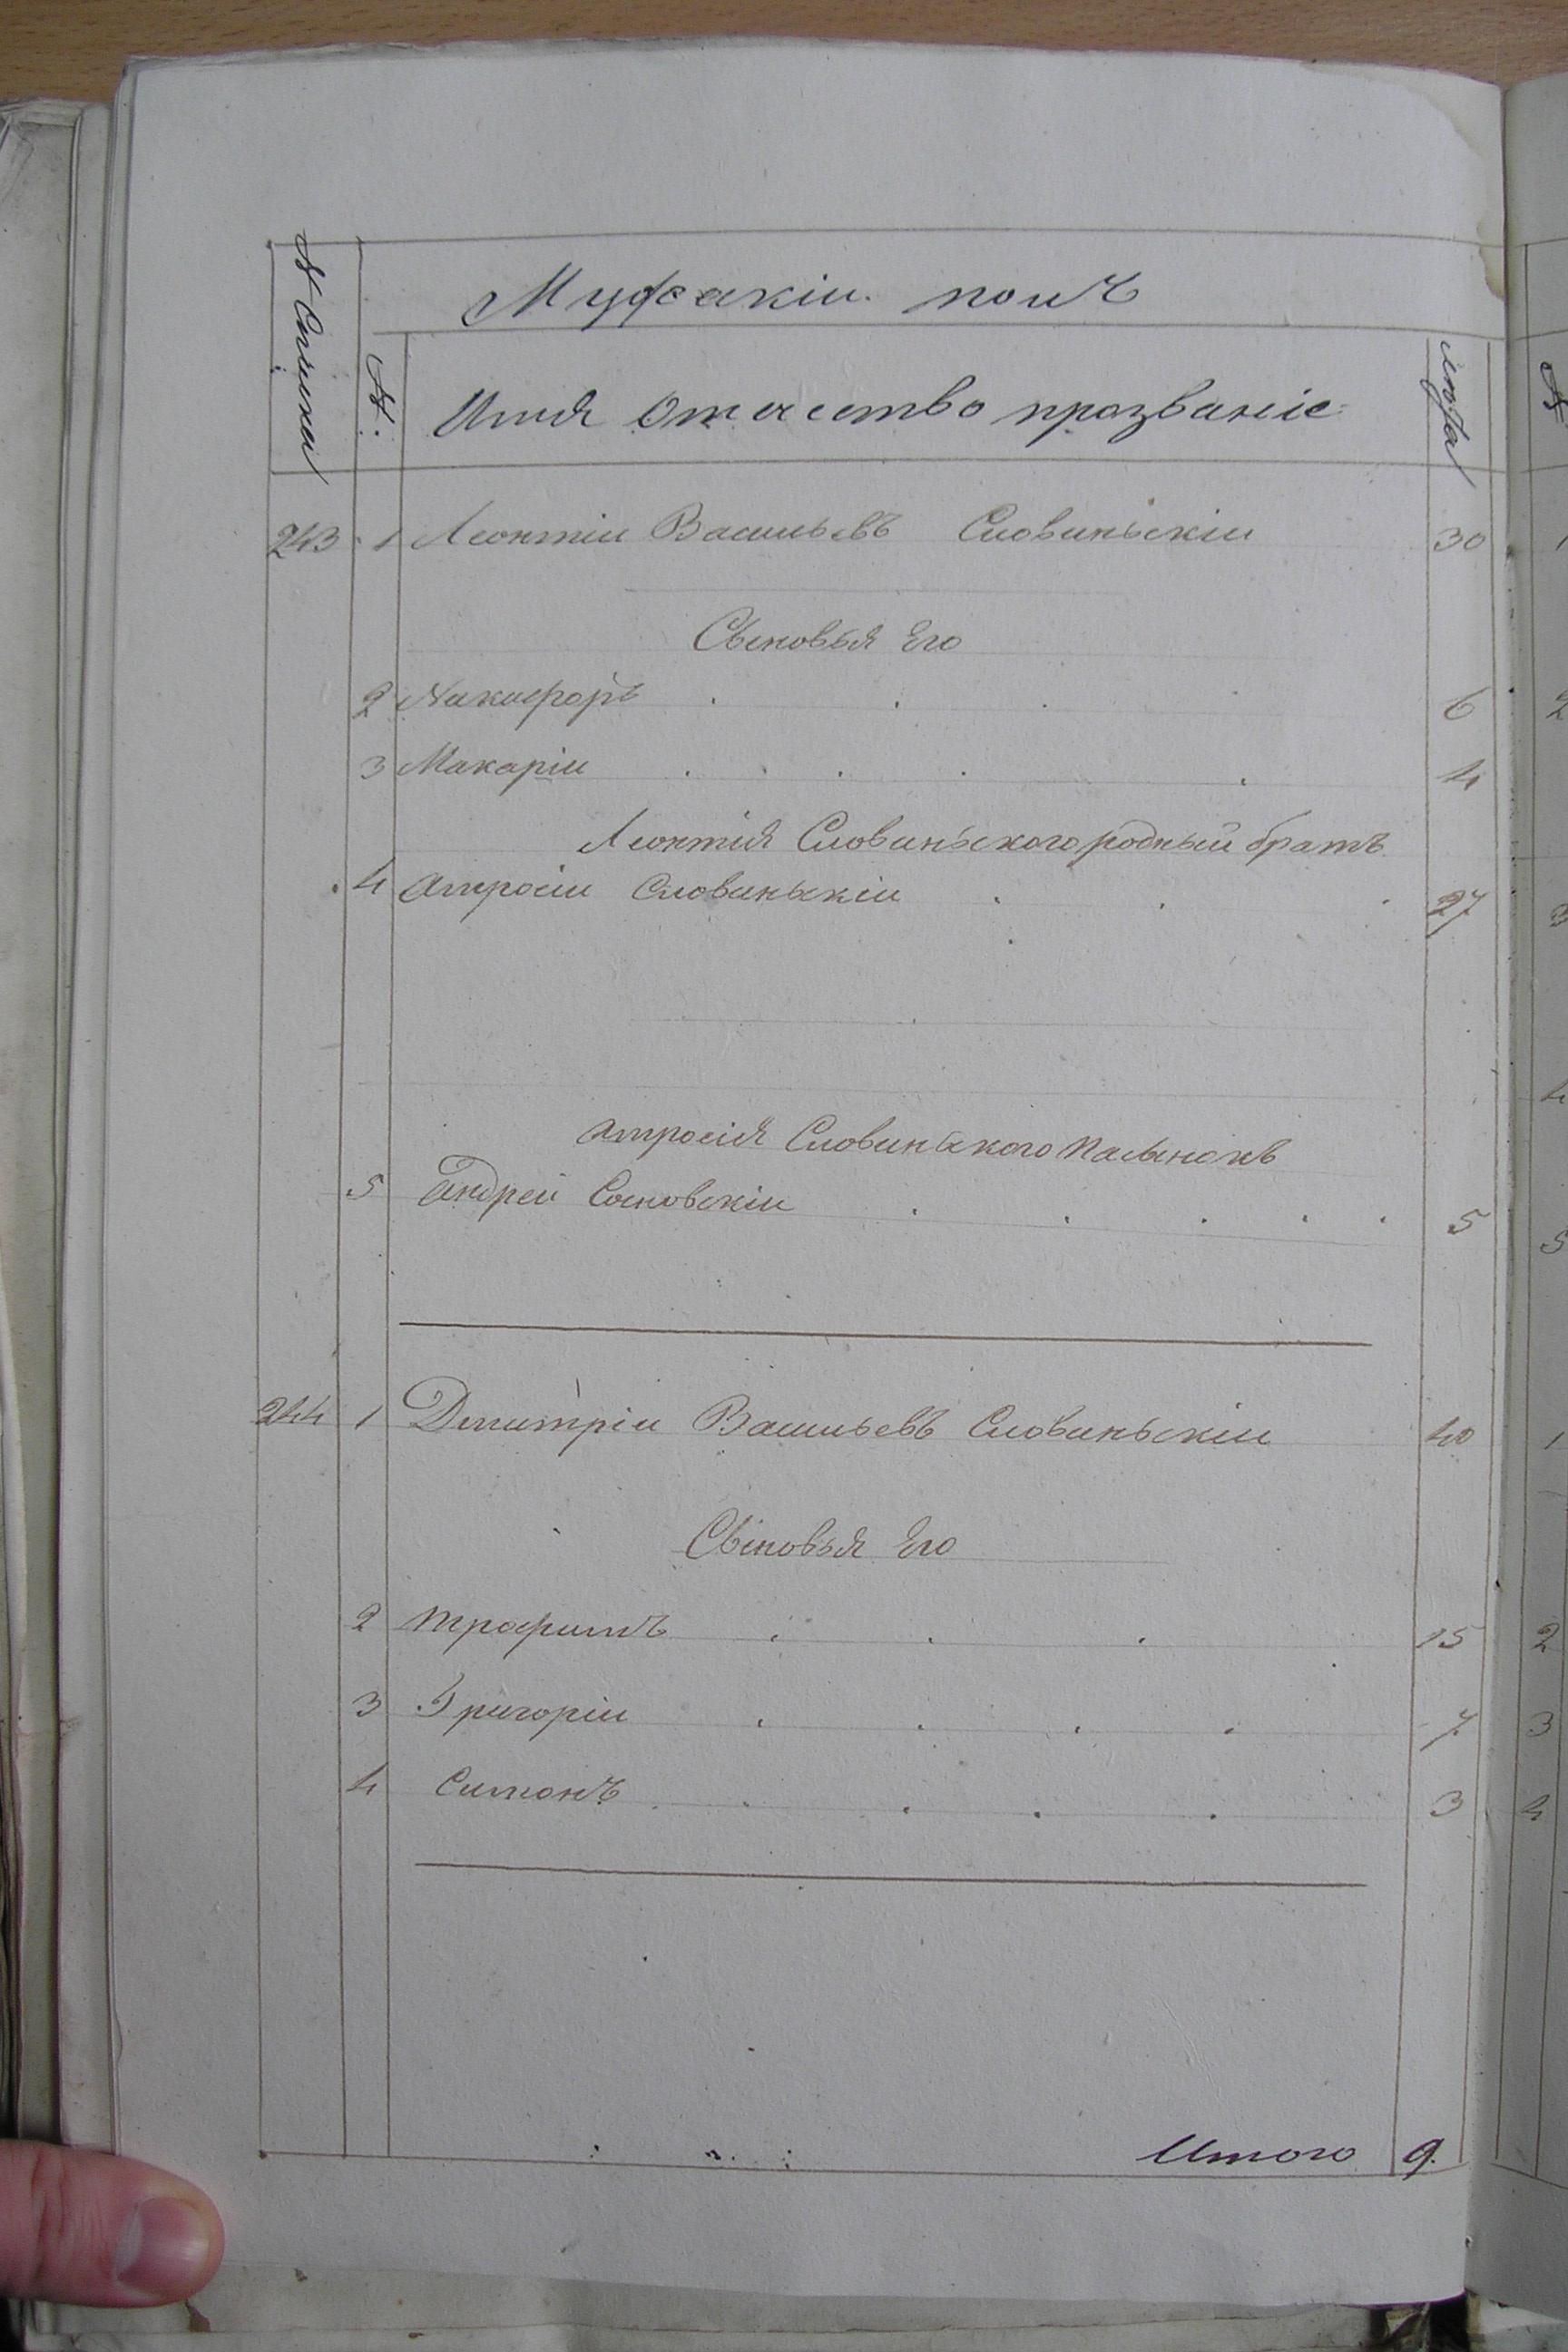 Мужакіи полъ
№ Списка
№:
Имя Отчество прозваніе
лѣта
243 1 Леонтіи Васильевъ Словиньскіи 30
Сыновья Его
2 Никифоръ 6
3 Макаріи 4
Леонтія Словиньского родный братъ
4 Амросіи Словиньскіи 27
Амросія Словиньского Пасынокъ
5 Андрей Сосновскіи 5
244 1 Дмитріи Васильевъ Словиньскіи 40
Сыновья Его
2 Трофимъ 15
3 Григоріи 7
4 Симонъ 3
Итого 9.